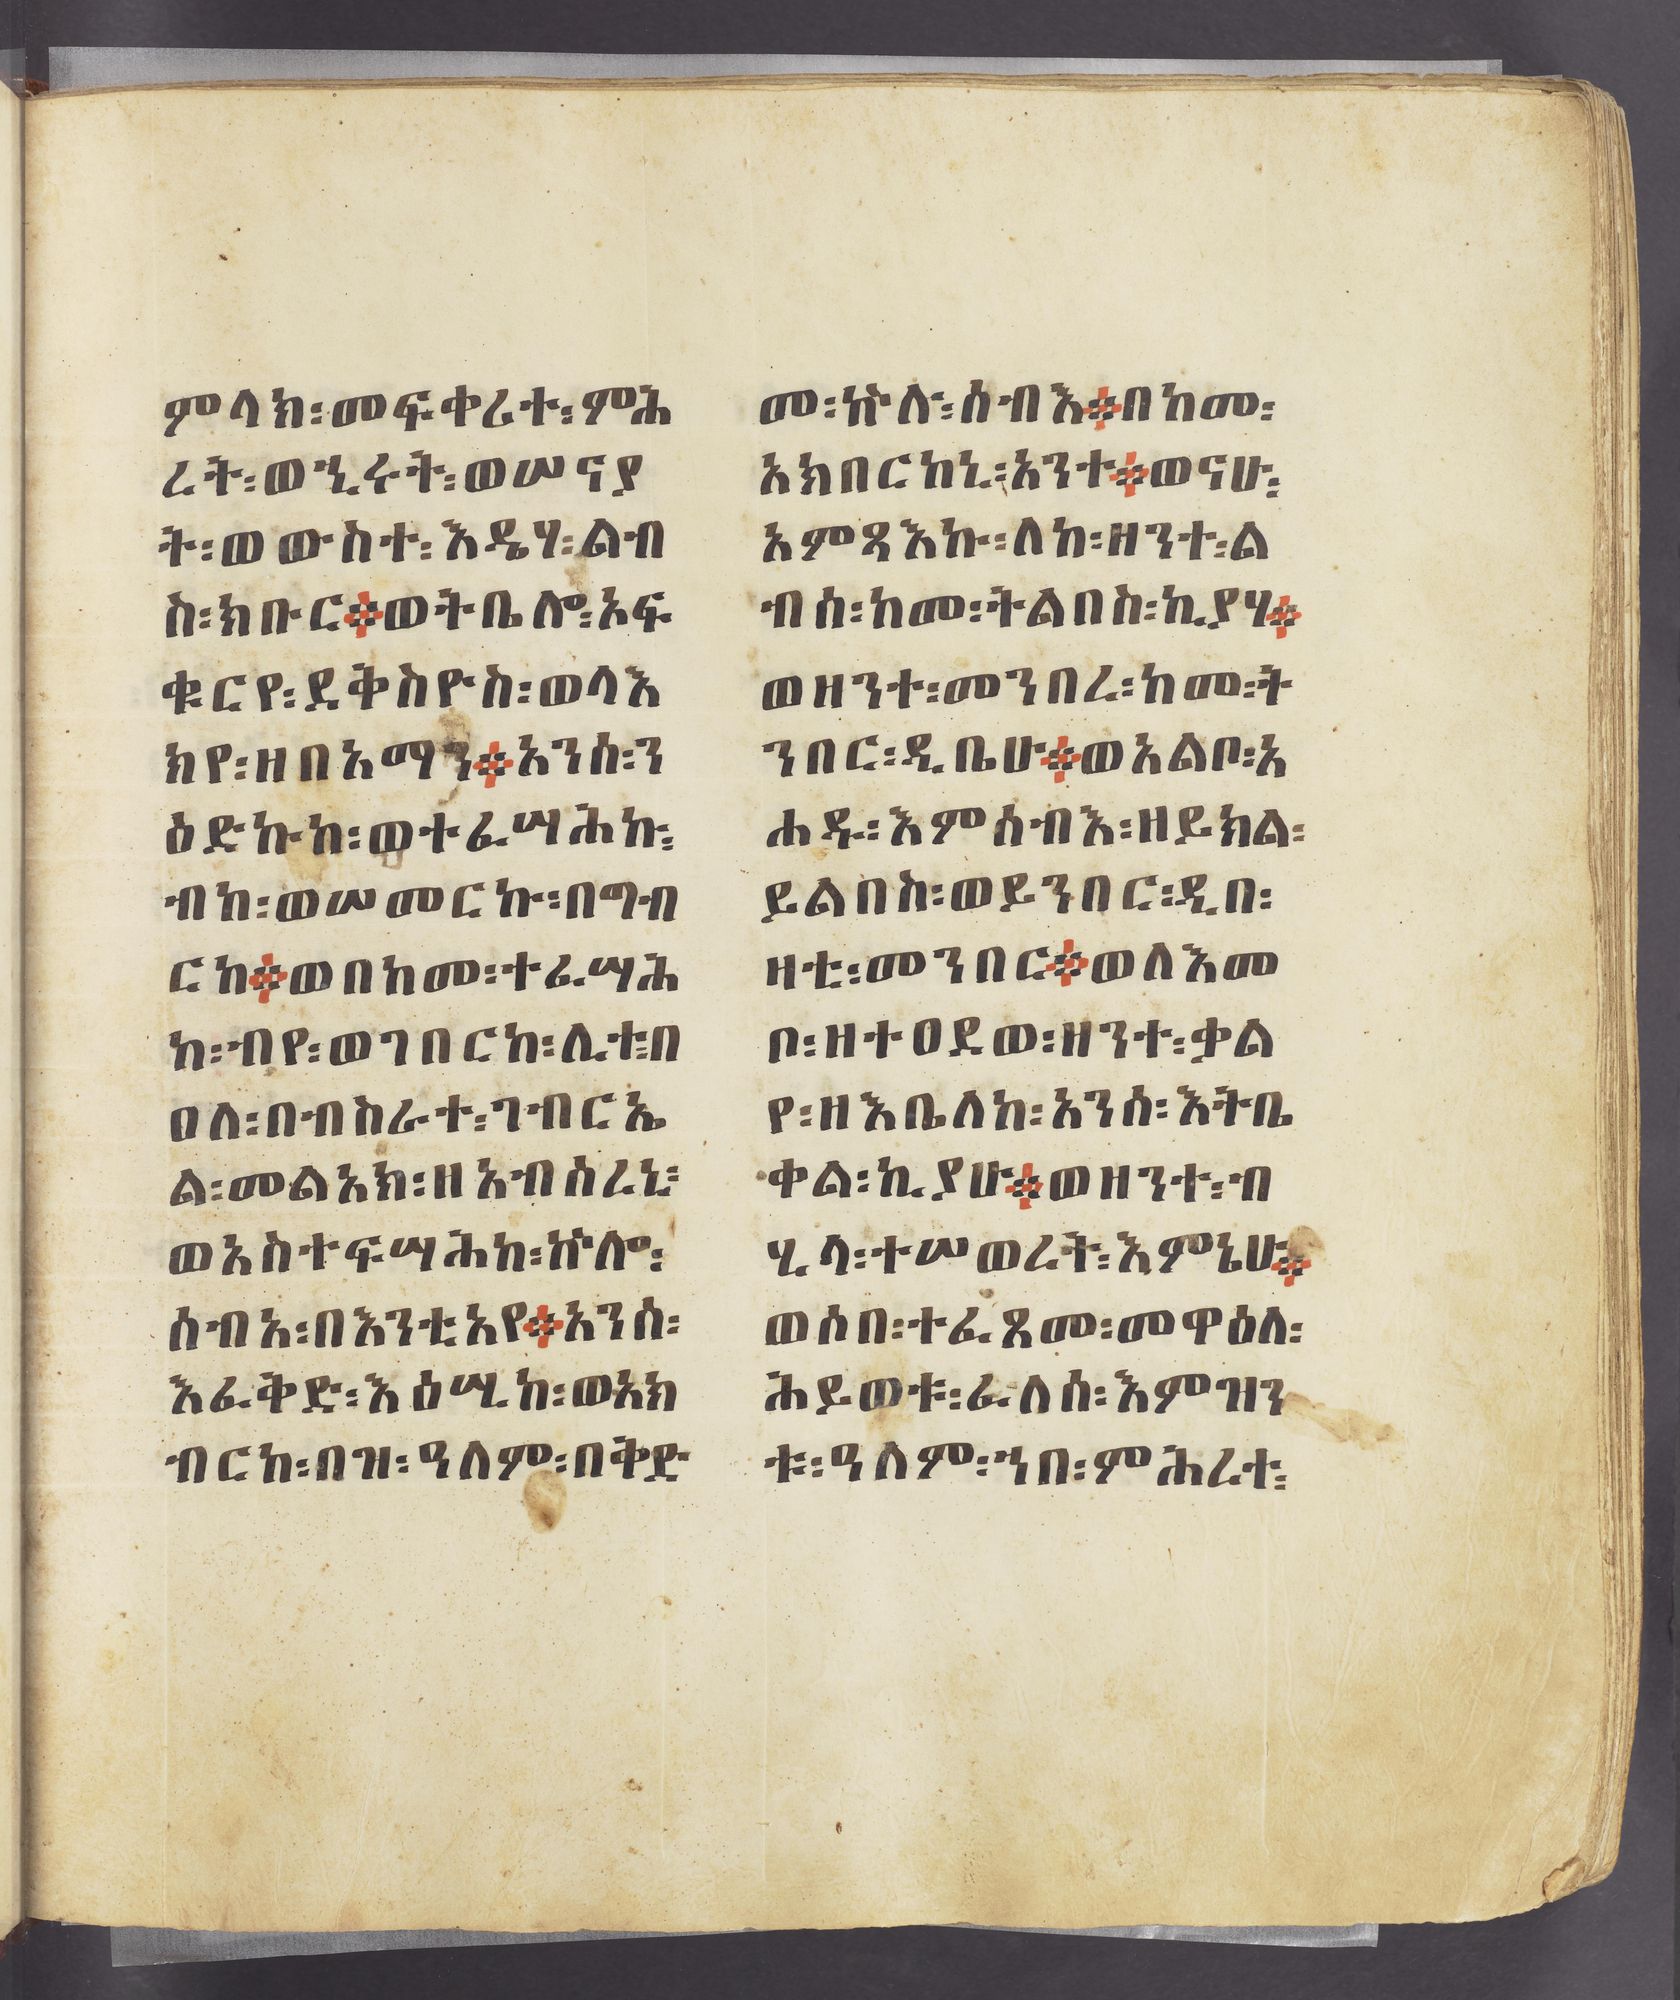 ምላክ፡መፍቀሪተ፡ምሕ
ረት፡ወኂሩት፡ወሠናያ
ት፡ወውስተ፡እዴሃ፡ልብ
ስ፡ክቡር፨ወትቤሎ፡አፍ
ቁርየ፡ደቅስዮስ፡ወላእ
ክየ፡ዘበአማን፨አንሰ፡ን
ዕድኩከ፡ወተፈሣሕኩ፡
ብከ፡ወሠመርኩ፡በግብ
ርከ፨ወበከመ፡ተፈሣሕ
ከ፡ብየ፡ወገበርከ፡ሊተ፡በ
ዐለ፡በብስራተ፡ገብርኤ
ል፡መልአክ፡ዘአብሰረኒ፡
ወአስተፍሣሕከ፡ኵሎ፡
ሰብአ፡በእንቲአየ፨አንሰ፡
እፈቅድ፡እዕሢከ፡ወአክ
ብርከ፡በዝ፡ዓለም፡በቅድ
መ፡ኵሉ፡ሰብእ፨በከመ፡
አክበርከኒ፡አንተ፨ወናሁ፡
አምጻእኩ፡ለከ፡ዘንተ፡ል
ብሰ፡ከመ፡ትልበስ፡ኪያሃ፨
ወዘንተ፡መንበረ፡ከመ፡ት
ንበር፡ዲቤሁ፨ወአልቦ፡አ
ሐዱ፡እምሰብእ፡ዘይክል፡
ይልበስ፡ወይንበር፡ዲበ፡
ዛቲ፡መንበር፨ወለእመ
ቦ፡ዘተዐደወ፡ዘንተ፡ቃል
የ፡ዘእቤለከ፡አንሰ፡እትቤ
ቀል፡ኪያሁ፨ወዘንተ፡ብ
ሂላ፡ተሠወረት፡እምኔሁ፨
ወሶበ፡ተፈጸመ፡መዋዕለ፡
ሕይወቱ፡ፈለሰ፡እምዝን
ቱ፡ዓለም፡ኀበ፡ምሕረተ፡